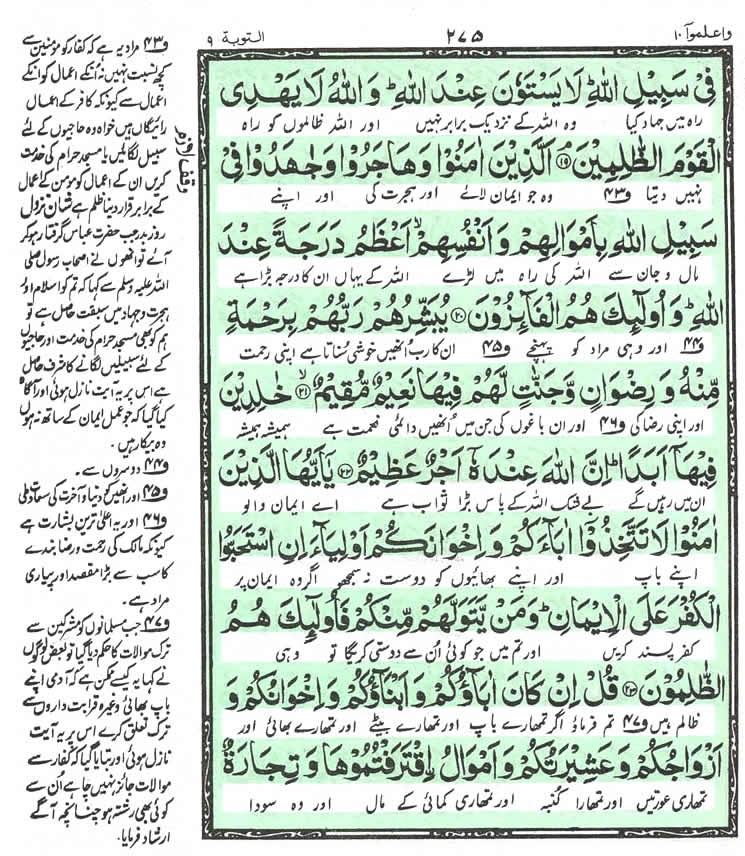 واعلموا ۱۰
۲۷۵
التوبة ۹
فِیْ سَبِیْلِ اللّٰهِ ؕ لَا یَسْتَوٗنَ عِنْدَ اللّٰهِ ؕ وَ اللّٰهُ لَا یَهْدِی
راہ میں جہاد کیا وہ اللہ کے نزدیک برابر نہیں اور اللہ ظالموں کو راہ
الْقَوْمَ الظّٰلِمِیْنَ ۘ﴿۱۹﴾ اَلَّذِیْنَ اٰمَنُوْا وَ هَاجَرُوْا وَ جٰهَدُوْا فِیْ
نہیں دیتا و۴۳ وہ جو ایمان لائے اور ہجرت کی اور اپنے
سَبِیْلِ اللّٰهِ بِاَمْوَالِهِمْ وَ اَنْفُسِهِمْ ۙ اَعْظَمُ دَرَجَةً عِنْدَ
مال و جان سے اللہ کی راہ میں لڑے اللہ کے یہاں ان کا درجہ بڑا ہے
اللّٰهِ ؕ وَ اُولٰٓىِٕكَ هُمُ الْفَآىِٕزُوْنَ ﴿۲۰﴾ یُبَشِّرُهُمْ رَبُّهُمْ بِرَحْمَةٍ
و۴۴ اور وہی مراد کو پہنچے و۴۵ ان کا رب انھیں خوشی سناتا ہے اپنی رحمت
مِّنْهُ وَ رِضْوَانٍ وَّ جَنّٰتٍ لَّهُمْ فِیْهَا نَعِیْمٌ مُّقِیْمٌ ۙ﴿۲۱﴾ خٰلِدِیْنَ
اور اپنی رضا کی و۴۶ اور ان باغوں کی جن میں انھیں دائمی نعمت ہے ہمیشہ ہمیشہ
فِیْهَاۤ اَبَدًا ؕ اِنَّ اللّٰهَ عِنْدَهٗۤ اَجْرٌ عَظِیْمٌ ﴿۲۲﴾ یٰۤاَیُّهَا الَّذِیْنَ
ان میں رہیں گے بے شک اللہ کے پاس بڑا ثواب ہے اے ایمان والو
اٰمَنُوْا لَا تَتَّخِذُوْۤا اٰبَآءَكُمْ وَ اِخْوَانَكُمْ اَوْلِیَآءَ اِنِ اسْتَحَبُّوا
اپنے باپ اور اپنے بھائیوں کو دوست نہ سمجھو اگر وہ ایمان پر
الْكُفْرَ عَلَی الْاِیْمَانِ ؕ وَ مَنْ یَّتَوَلَّهُمْ مِّنْكُمْ فَاُولٰٓىِٕكَ هُمُ
کفر پسند کریں اور تم میں جو کوئی ان سے دوستی کرے گا تو وہی
الظّٰلِمُوْنَ ﴿۲۳﴾ قُلْ اِنْ كَانَ اٰبَآؤُكُمْ وَ اَبْنَآؤُكُمْ وَ اِخْوَانُكُمْ وَ
ظالم ہیں و۴۷ تم فرماؤ اگر تمھارے باپ اور تمھارے بیٹے اور تمھارے بھائی اور
اَزْوَاجُكُمْ وَ عَشِیْرَتُكُمْ وَ اَمْوَالُ اِ۟قْتَرَفْتُمُوْهَا وَ تِجَارَةٌ
تمھاری عورتیں اور تمھارا کنبہ اور تمھاری کمائی کے مال اور وہ سودا
و۴۳ مراد یہ ہے کہ کفار کو مؤمنین سے
کچھ نسبت نہیں نہ اُنکے اعمال کو انکے
اعمال سے کیونکہ کافر کے اعمال
رائیگاں ہیں خواہ وہ حاجیوں کے لئے
سبیل لگائیں یا مسجد حرام کی خدمت
کریں ان کے اعمال کو مؤمن کے اعمال
کے برابر قرار دینا ظلم ہے شان نزول
روز بدر جب حضرت عباس گرفتار ہو کر
آئے تو انھوں نے اصحاب رسول صلی
اللہ علیہ وسلم سے کہا کہ تم کو اسلام اور
ہجرت و جہاد میں سبقت حاصل ہے تو
ہم کو بھی مسجد حرام کی خدمت اور حاجیوں
کے لئے سبیلیں لگانے کا شرف حاصل
ہے اس پر یہ آیت نازل ہوئی اور آگاہ
کیا گیا کہ جو عمل ایمان کے ساتھ نہ ہوں
وہ بیکار ہیں۔
و۴۴ دوسروں سے۔
و۴۵ اور انھیں کو دنیا و آخرت کی سعادت ملی
و۴۶ اور یہ اعلیٰ ترین بشارت ہے
کیونکہ مالک کی رحمت و رضا بندے
کا سب سے بڑا مقصد اور پیاری
مراد ہے۔
و۴۷ جب مسلمانوں کو مشرکین سے
ترک موالات کا حکم دیا گیا تو بعض لوگوں
نے کہا یہ کیسے ممکن ہے کہ آدمی اپنے
باپ بھائی وغیرہ قرابت داروں سے
ترک تعلق کرے اس پر یہ آیت
نازل ہوئی اور بتایا گیا کہ کفار سے
موالات جائز نہیں چاہے اُن سے
کوئی بھی رشتہ ہو چنانچہ آگے
ارشاد فرمایا۔